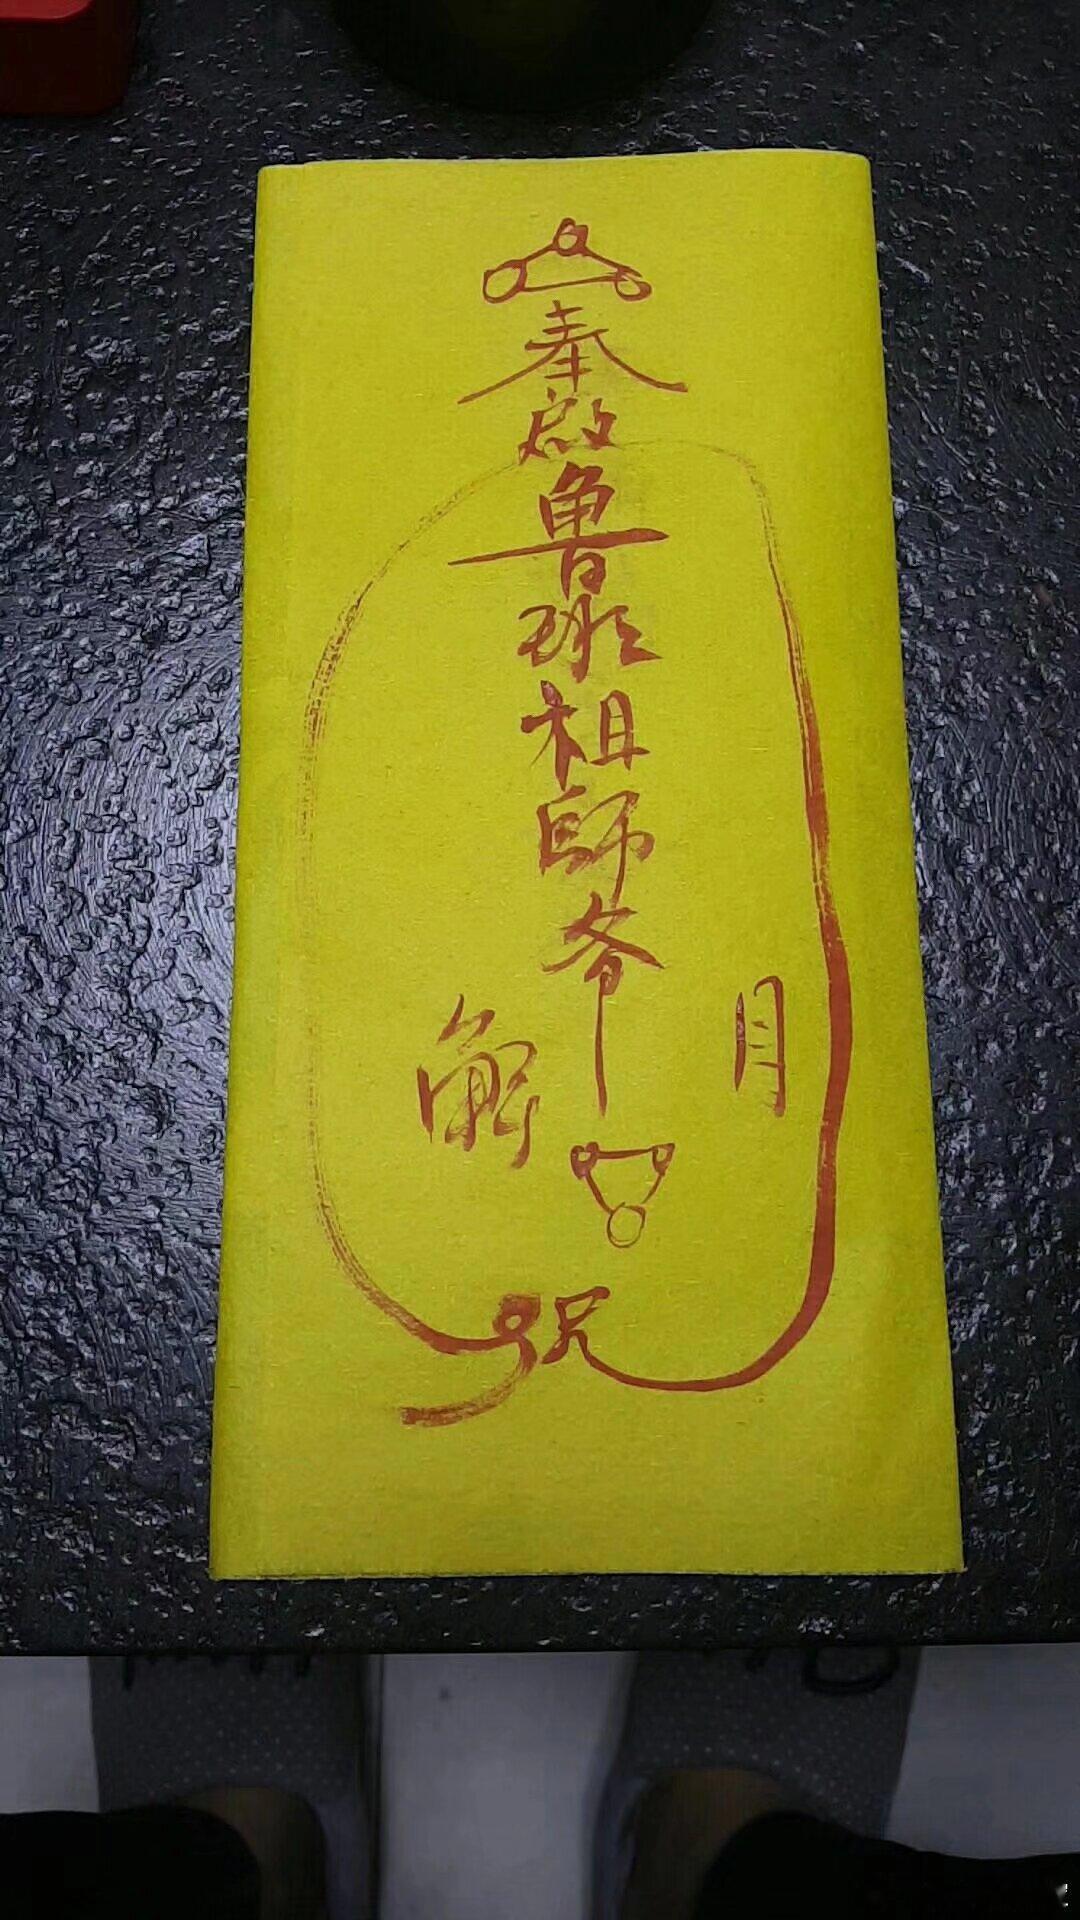 奉啟魯班祖師爷
解
月
咒